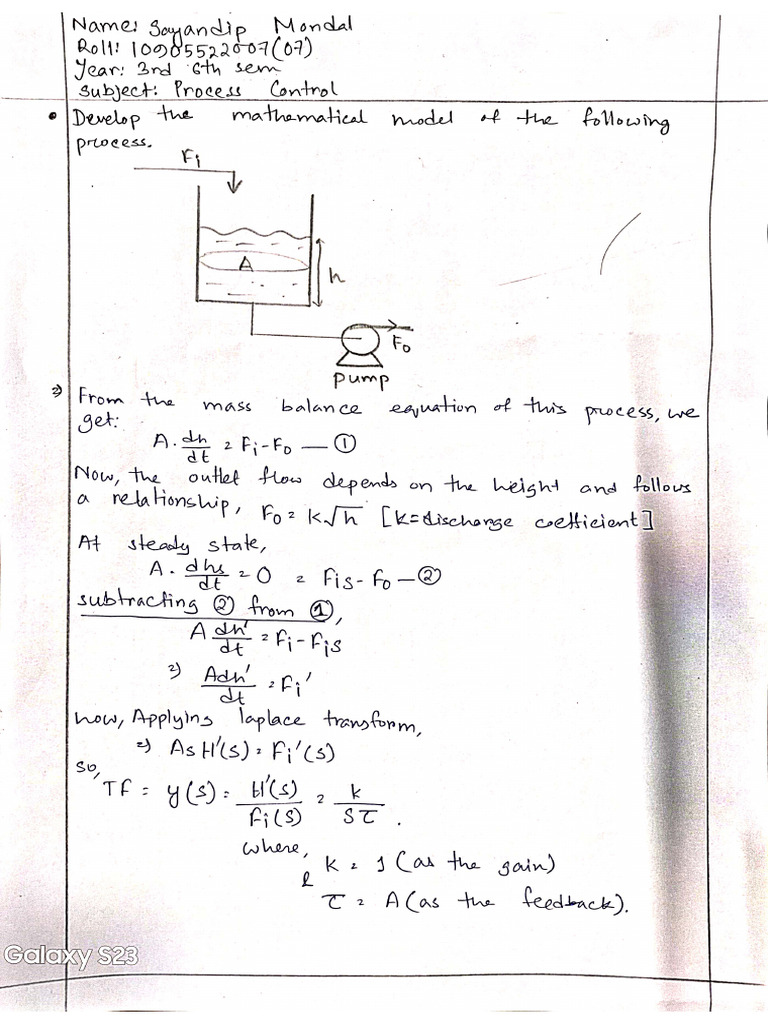 Name: Sayandip Mondal
Roll: 10905522007(07)
Year: 3rd 6th sem
Subject: Process Control
• Develop the mathematical model of the following
process.
Fi
A
h
Fo
pump
⇒ From the mass balance equation of this process, we
get:
A. dh/dt = Fi-Fo — ①
Now, the outlet flow depends on the height and follows
a relationship, Fo = K√h [K=discharge coefficient]
At steady state,
A. dhs/dt = 0 = Fis - Fo — ②
subtracting ② from ①,
A dh'/dt = Fi - Fis
⇒ Adh'/dt = Fi'
now, Applying laplace transform,
⇒ As H'(s) = Fi'(s)
so,
TF = y(s) = H'(s)/Fi(s) = k/sτ.
where,
k = 1 (as the gain)
&
τ = A (as the feedback).
Galaxy S23